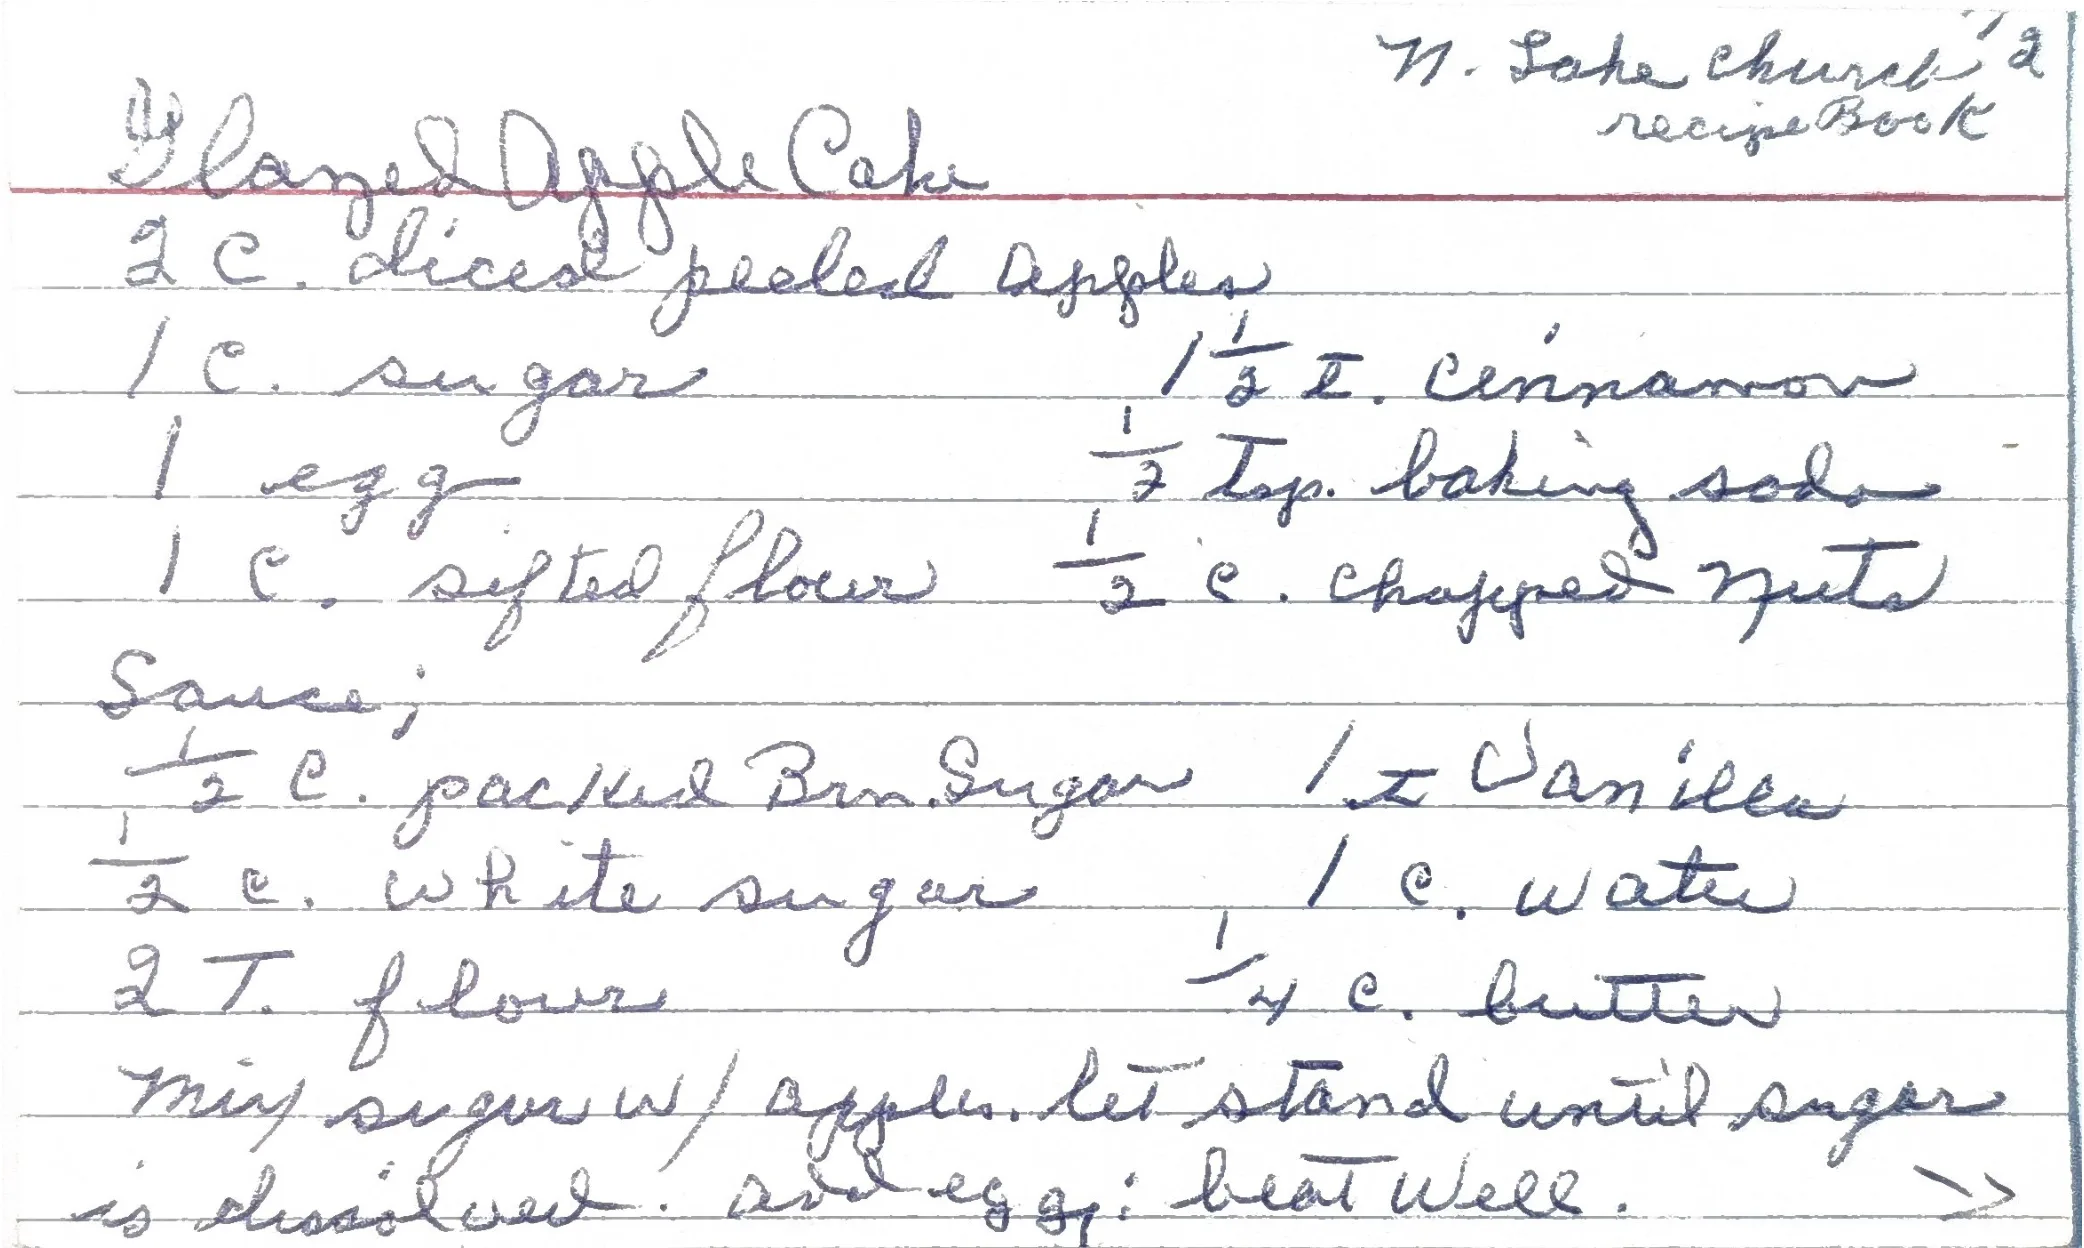 N. Lake Church '2
recipe Book
Glazed Apple Cake
2 c. diced peeled apples
1 c. sugar 1 1/2 t. cinnamon
1 egg 1/2 Tsp. baking soda
1 c. sifted flour 1/2 c. chopped nuts
Sauce;
1/2 c. packed Brn. Sugar 1 t Vanilla
1/2 c. white sugar 1 c. water
2 T. flour 1/4 c. butter
Mix sugar w/ apples. let stand until sugar
is dissolved. add egg; beat well. >>